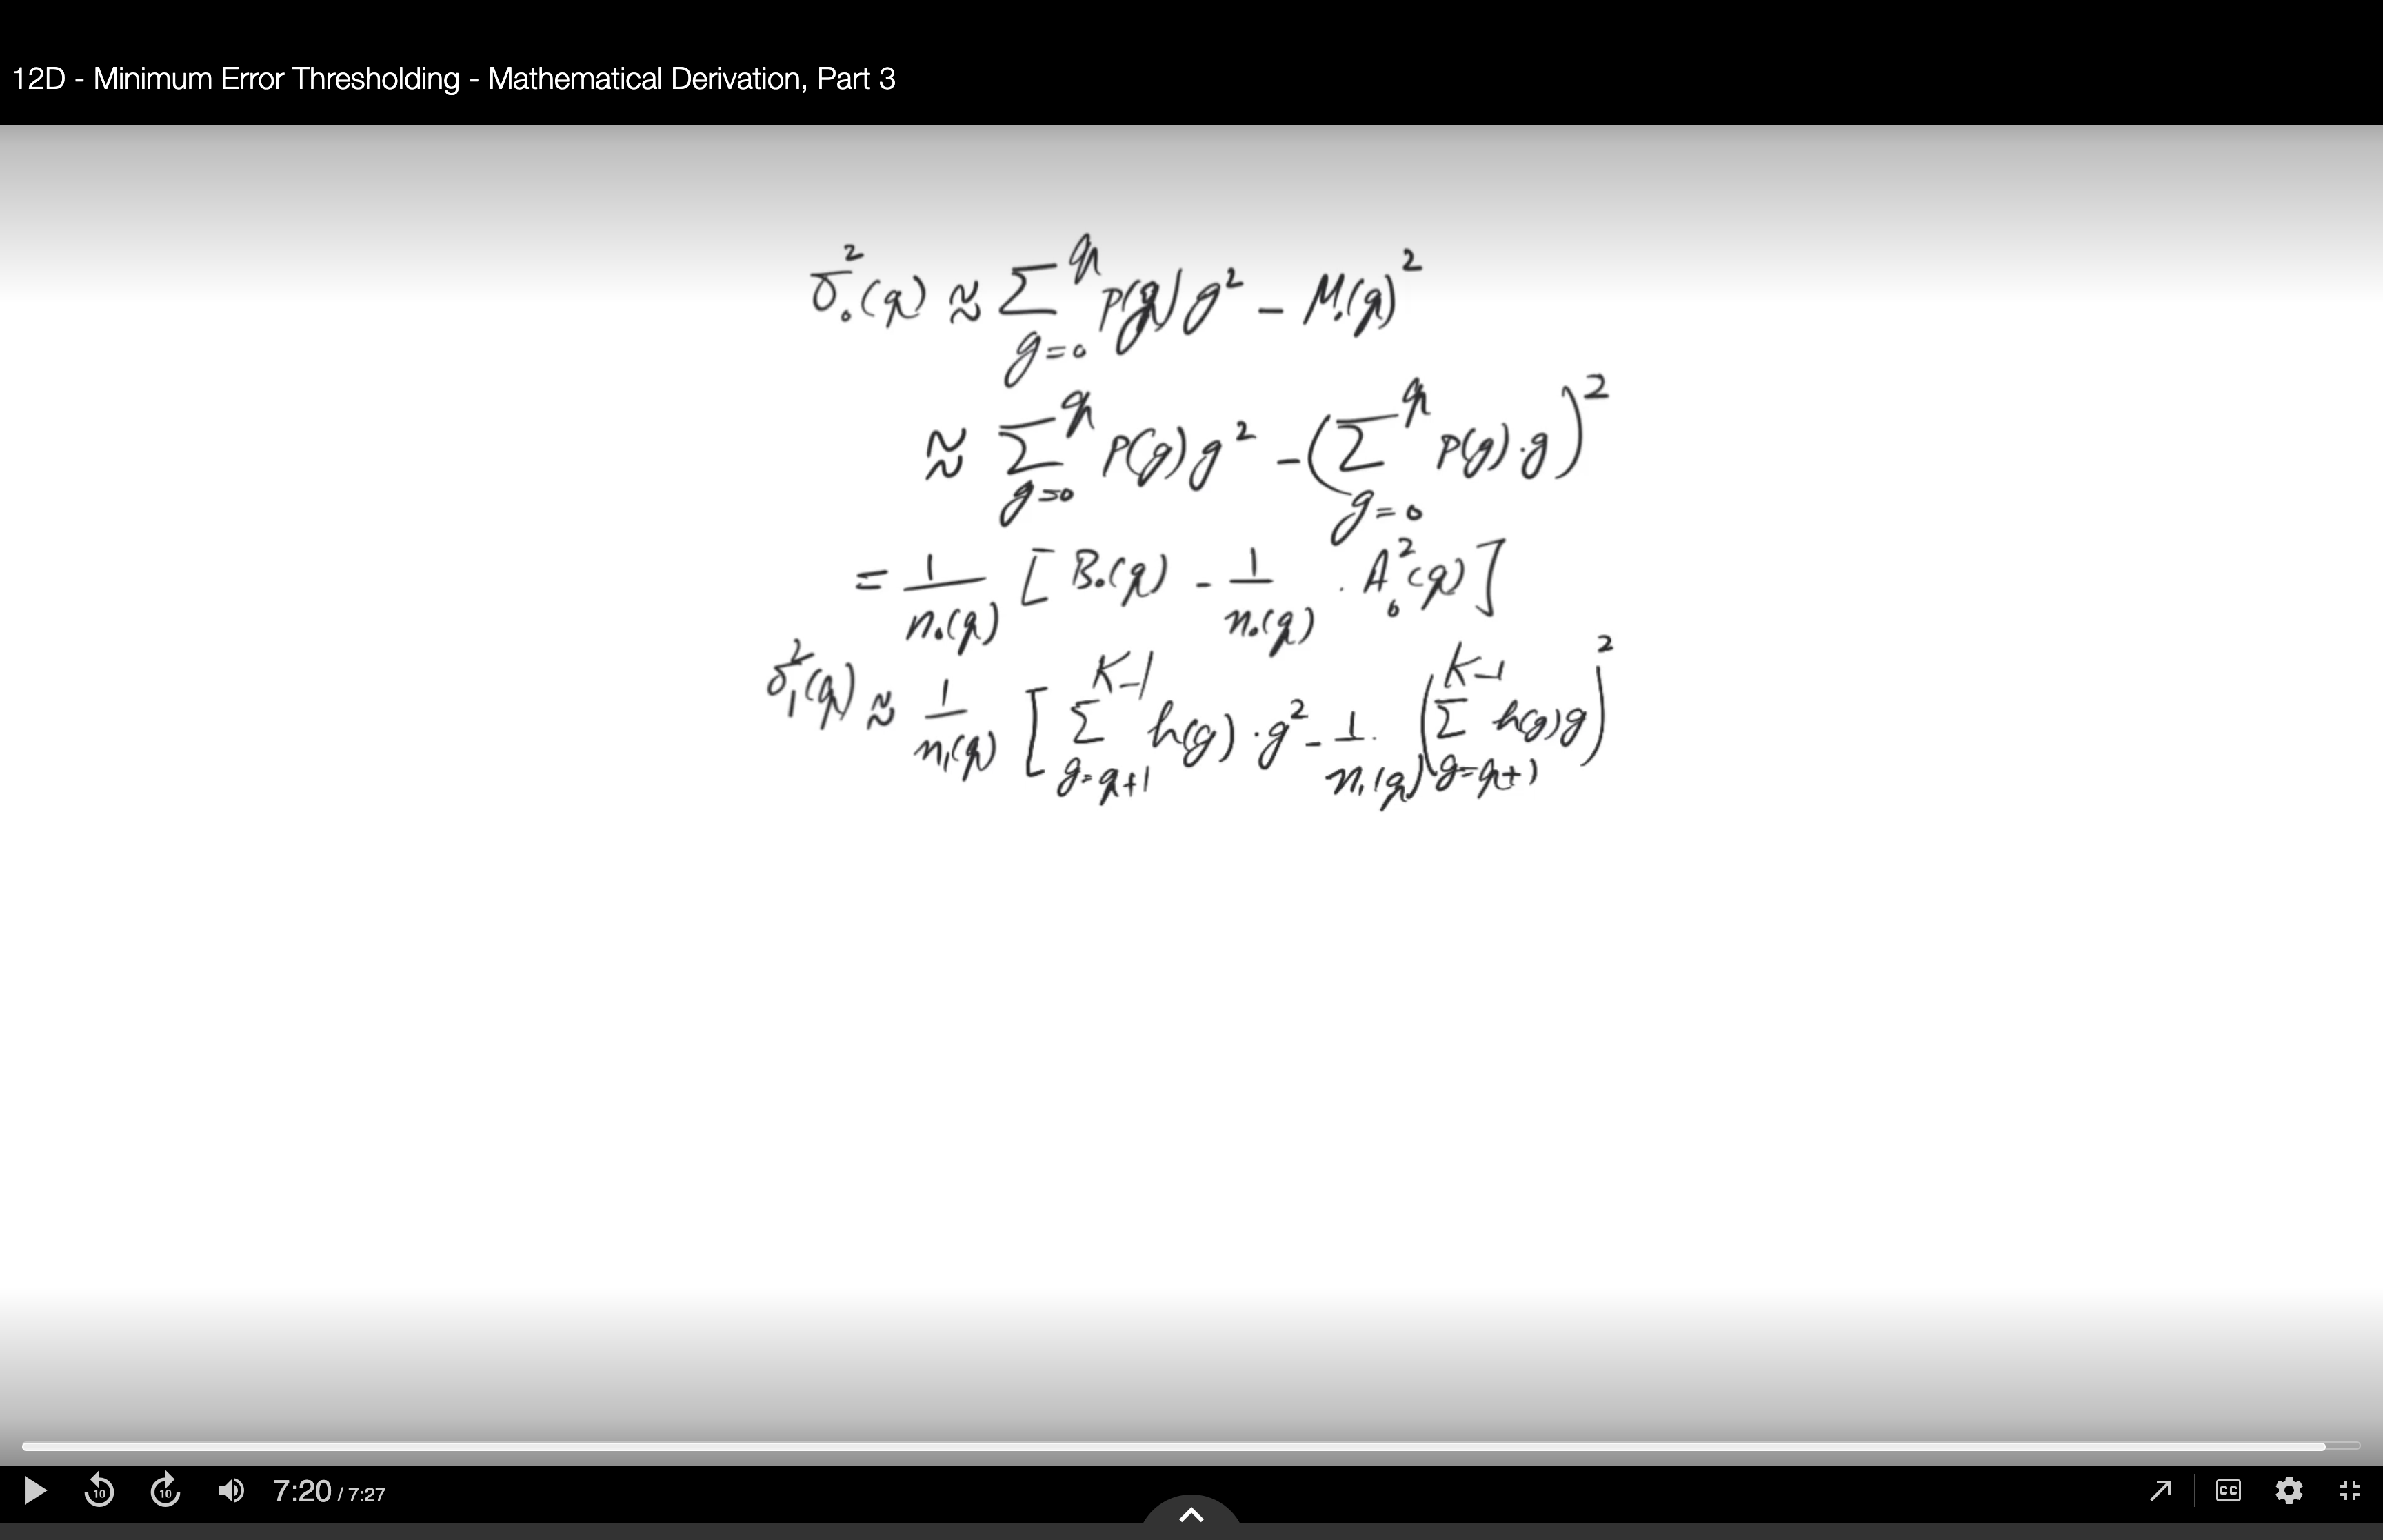 12D - Minimum Error Thresholding - Mathematical Derivation, Part 3
σ₀²(q) ≈ Σ_{g=0}^{q} P(g) g² - M₀(q)²
≈ Σ_{g=0}^{q} P(g) g² - (Σ_{g=0}^{q} P(g)·g)²
= 1/n₀(q) [B₀(q) - 1/n₀(q) · A₀²(q)]
σ₁²(q) ≈ 1/n₁(q) [Σ_{g=q+1}^{K-1} h(g)·g² - 1/n₁(q) · (Σ_{g=q+1}^{K-1} h(g)g)²
10
10
7:20 / 7:27
CC